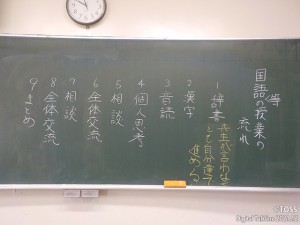 国語の授業の
等
流れ
1 辞書
先生が言わなくても自分達で
進める
2 漢字
3 音読
4 個人思考
5 相談
6 全体交流
7 相談
8 全体交流
9 まとめ
©TOSS